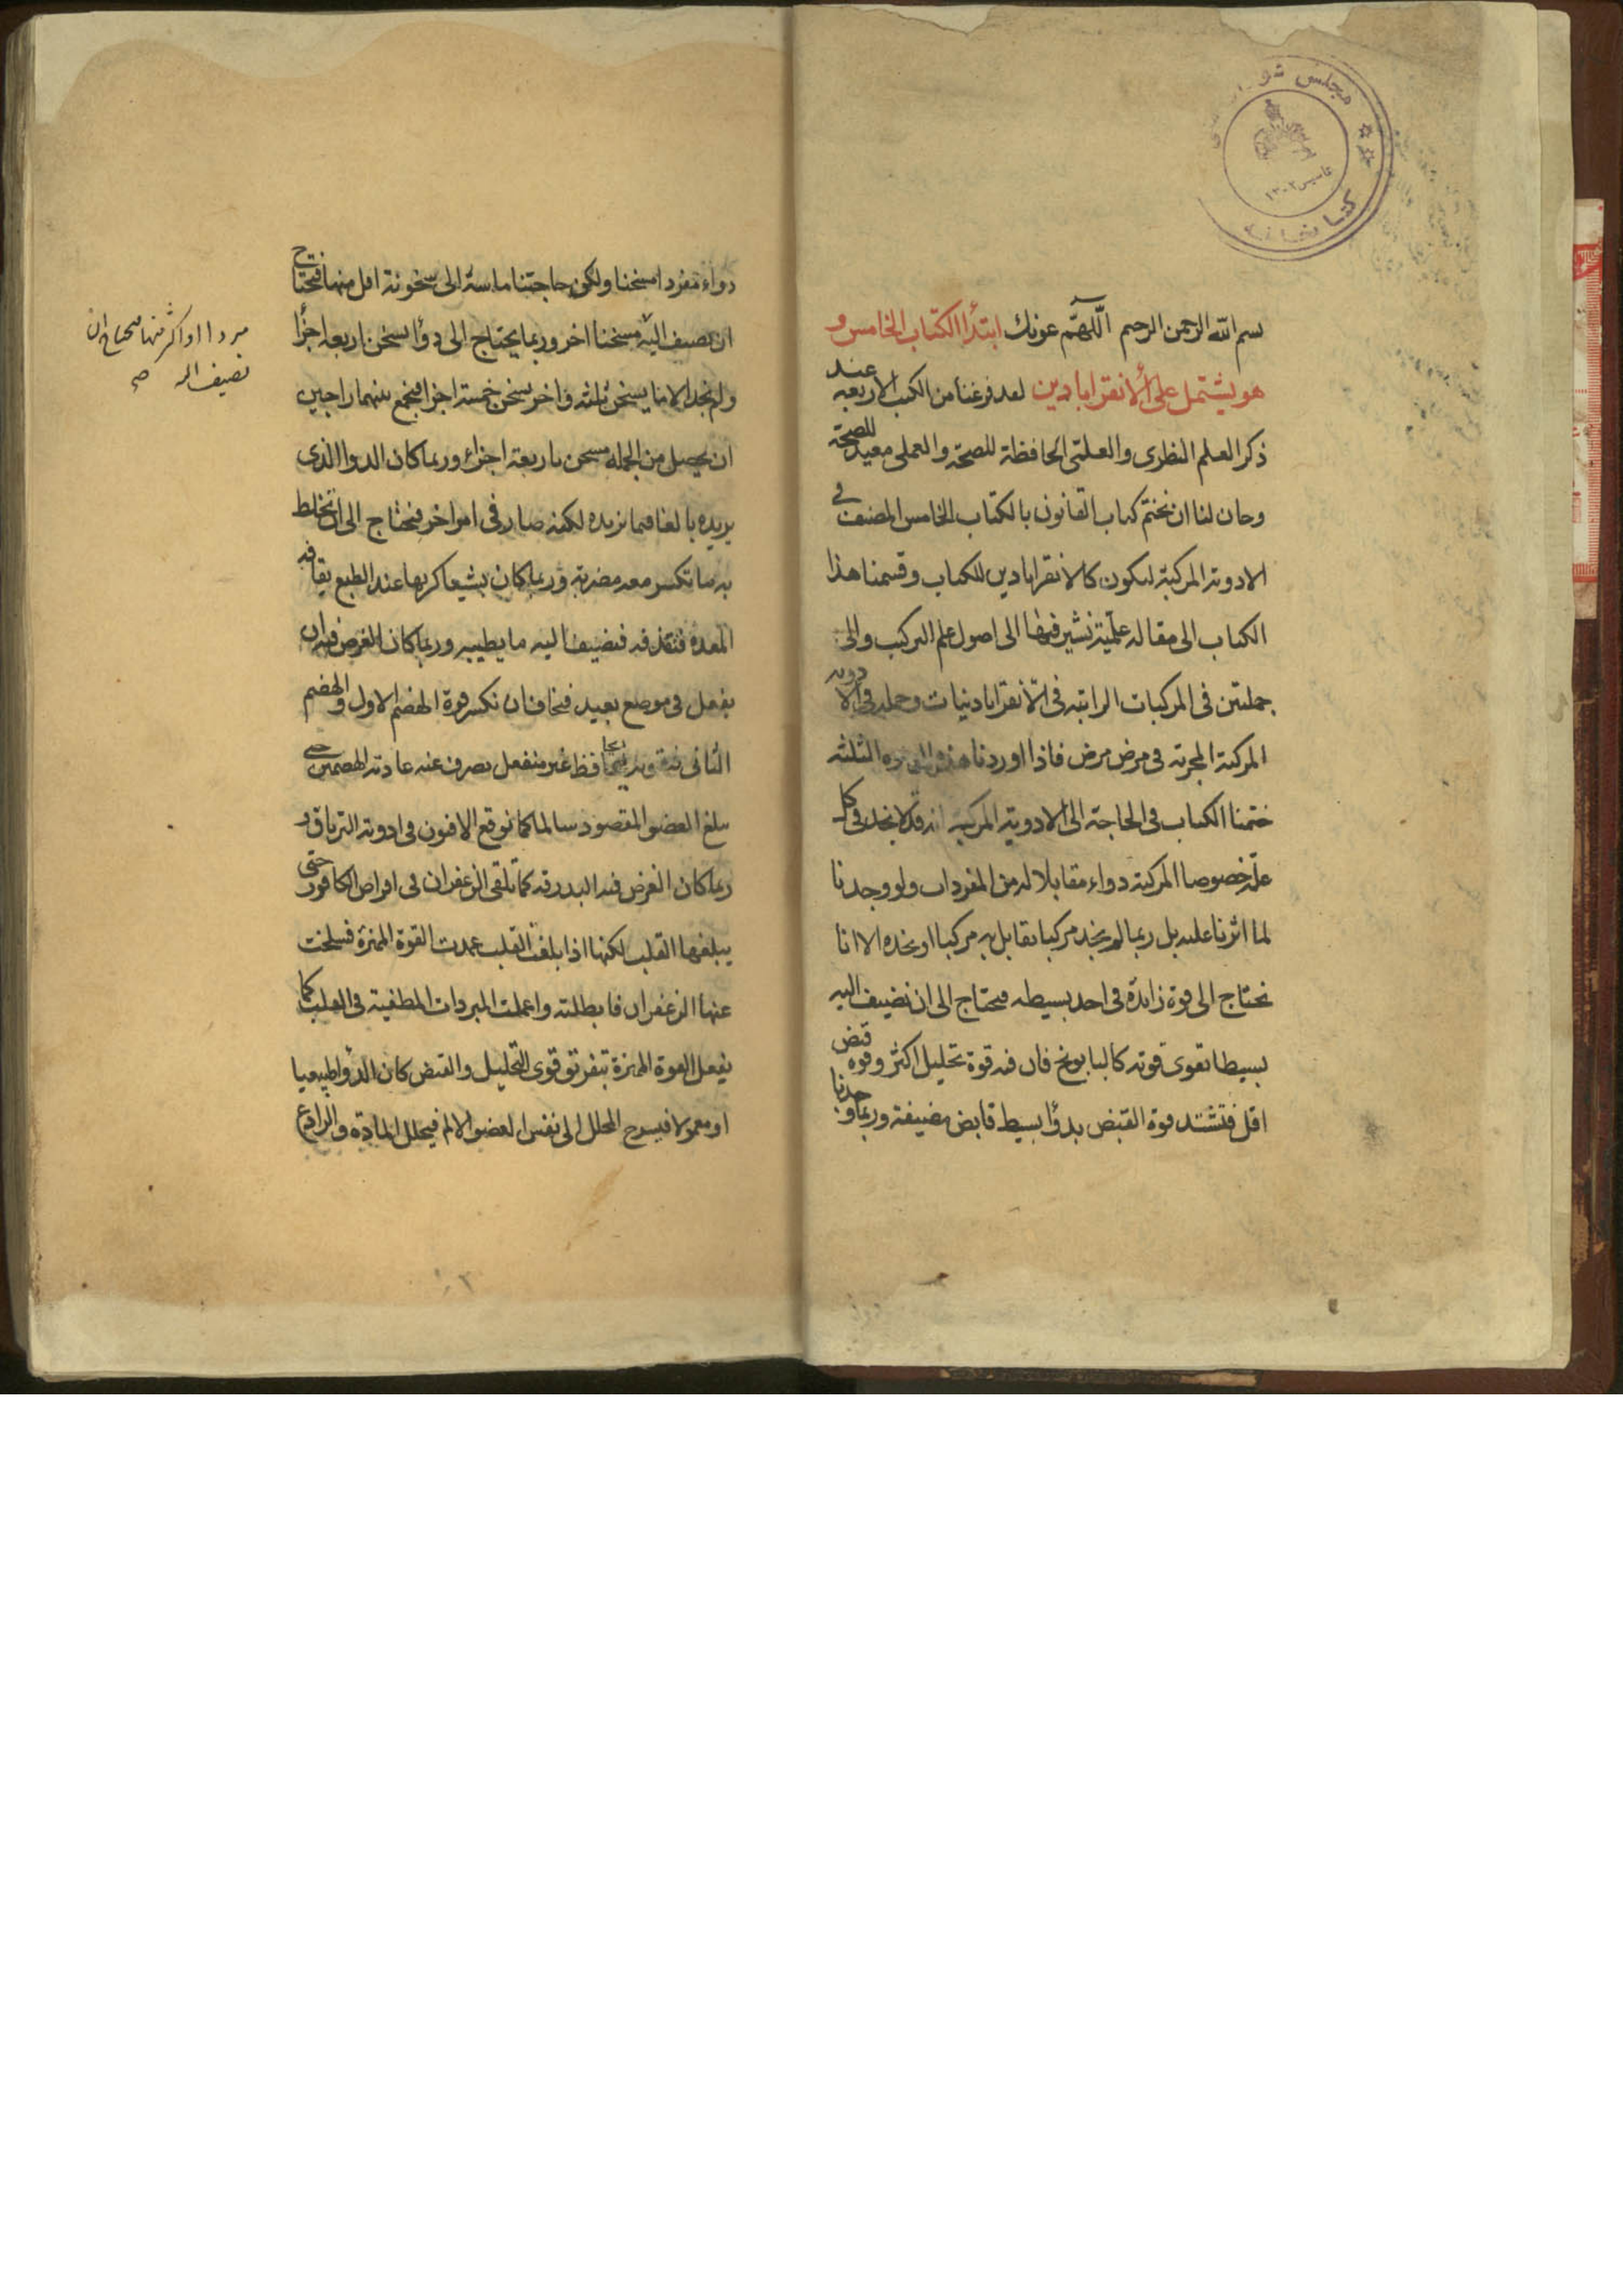 مجلس شو
كتابخانه
بسم الله الرحمن الرحيم اللهم عونك ابتدأ الكتاب الخامس و
هو يشتمل على الأنقرابادين لعد فرغنا من الكتب الاربعه عند
ذكر العلم النظرى والعلمى الحافظة للصحة والعملى معيد للصحة
وحان لنا ان نختم كتاب القانون بالكتاب الخامس المصنف فى
الادوية المركبة ليكون كالانقراباديں للكتاب وقسمنا هذا
الكتاب الى مقالة علمية نشير فيها الى اصول علم التركيب والى
جملتين فى المركبات الراتبه فى الانقراباذينات وجمله فى الادويه
المركبة المجربه فى مرض مرض فاذا اوردنا هذه الثلثه
ختمنا الكتاب فى الحاجة الى الادوية المركبه انه قد لا نجد فى كل
علة خصوصا المركبة دواء مقابلا له من المفردات ولو وجدنا
لما اثرنا عليه بل ربما لم نجد مركبا نقابل به مركبا او نجده الا انا
نحتاج الى قوة زايدة فى احد بسيطه فنحتاج الى ان نضيف اليه
بسيطا تقوى قوته كالبابونج فان فيه قوة تحليل اكثر وقوة قبض
اقل فتشتد قوة القبض بدوأ بسيط قابض نضيفه وربما وجدنا
دواء مفردا مسخنا ولكن حاجتنا ماسة الى سخونة اقل منها فنحتاج
ان نضيف اليه مسخنا اخر وربما يحتاج الى دوأ يسخن اربعه اجزأ
ولم نجد الا ما يسخن ثلثه واخر يسخن خمسة اجزا فنجمع بينهما راجين
ان يحصل من الجمله مسخن باربعة اجزاء وربما كان الدوا الذى
نريده بالغا فيما نريده لكنه ضار فى امر اخر فنحتاج الى ان نخلط
به ما تكسر معه مضرته وربما كان بشيعا كريها عند الطبع
المعدة فتقذفه فنضيف اليه ما يطيبه وربما كان الغرض فيه ان
يفعل فى موضع بعيد فنخاف ان تكسر قوة الهضم الاول والهضم
الثانى حافظ غير منفعل يصرف عنه عادية الهضمين حتى
يبلغ العضو المقصود سالما كما نوقع الافيون فى ادوية الترياق و
ربما كان الغرض فيه البدرقه كما نلقى الزعفران فى اقراص الكافور حتى
يبلغها القلب لكنها اذا بلغت القلب عمدت القوة المميزة فسلخت
عنها الزعفران فابطلته واعملت المبردات المطفية فى القلب كما
يفعل القوة المميزة بتفرقق قوى التحليل والقبض كان الدوأ طبيعيا
او معمولا فيسرح المحلل الى نفس العضو الالم فيحلل المادة والرادع
مبردا او اكثر منها فيحتاج ان
نضيف اليه صح